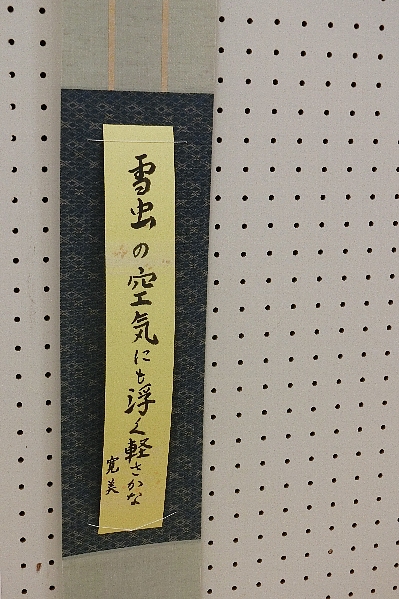 雪虫の空気にも浮く軽さかな
寛美